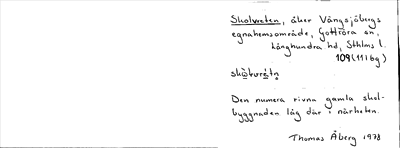 Skolvreten, åker Vängsjöbergs
egnahemsområde, Gottröra sn,
Långhundra hd, Sthlms l.
109 (11I6g)
Den numera rivna gamla skol-
byggnaden låg där i närheten.
Thomas Åberg 1978